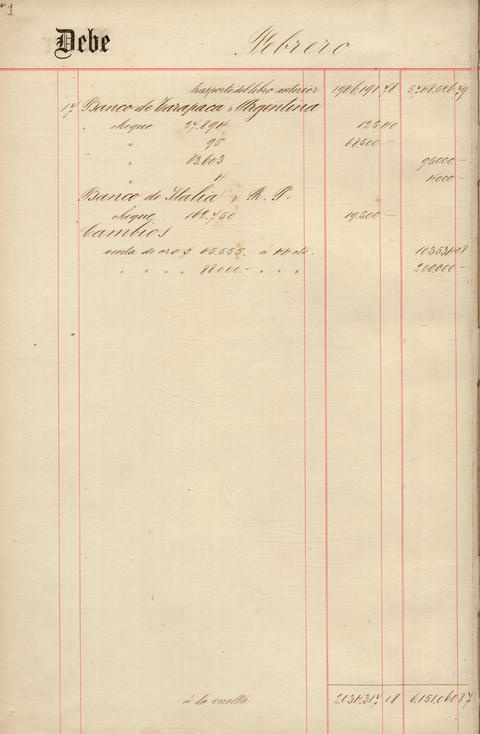 1
Debe Febrero
trasporte del libro anterior 1946.191 78 5,748.526 79
17 Banco de Tarapaca y Argentina
" cheque 27.894 125 40
" 95 68.500 —
" 63.603 95000 —
" 4 4.000 —
Banco de Italia y R. P.
cheque 162.750 19.500 —
Cambios
venta de oro $ 45.555. á 44 cts. 103534 08
" " " " 88000.- " " " 200.000 —
á la vuelta 2.034.317 18 6.151.060 87